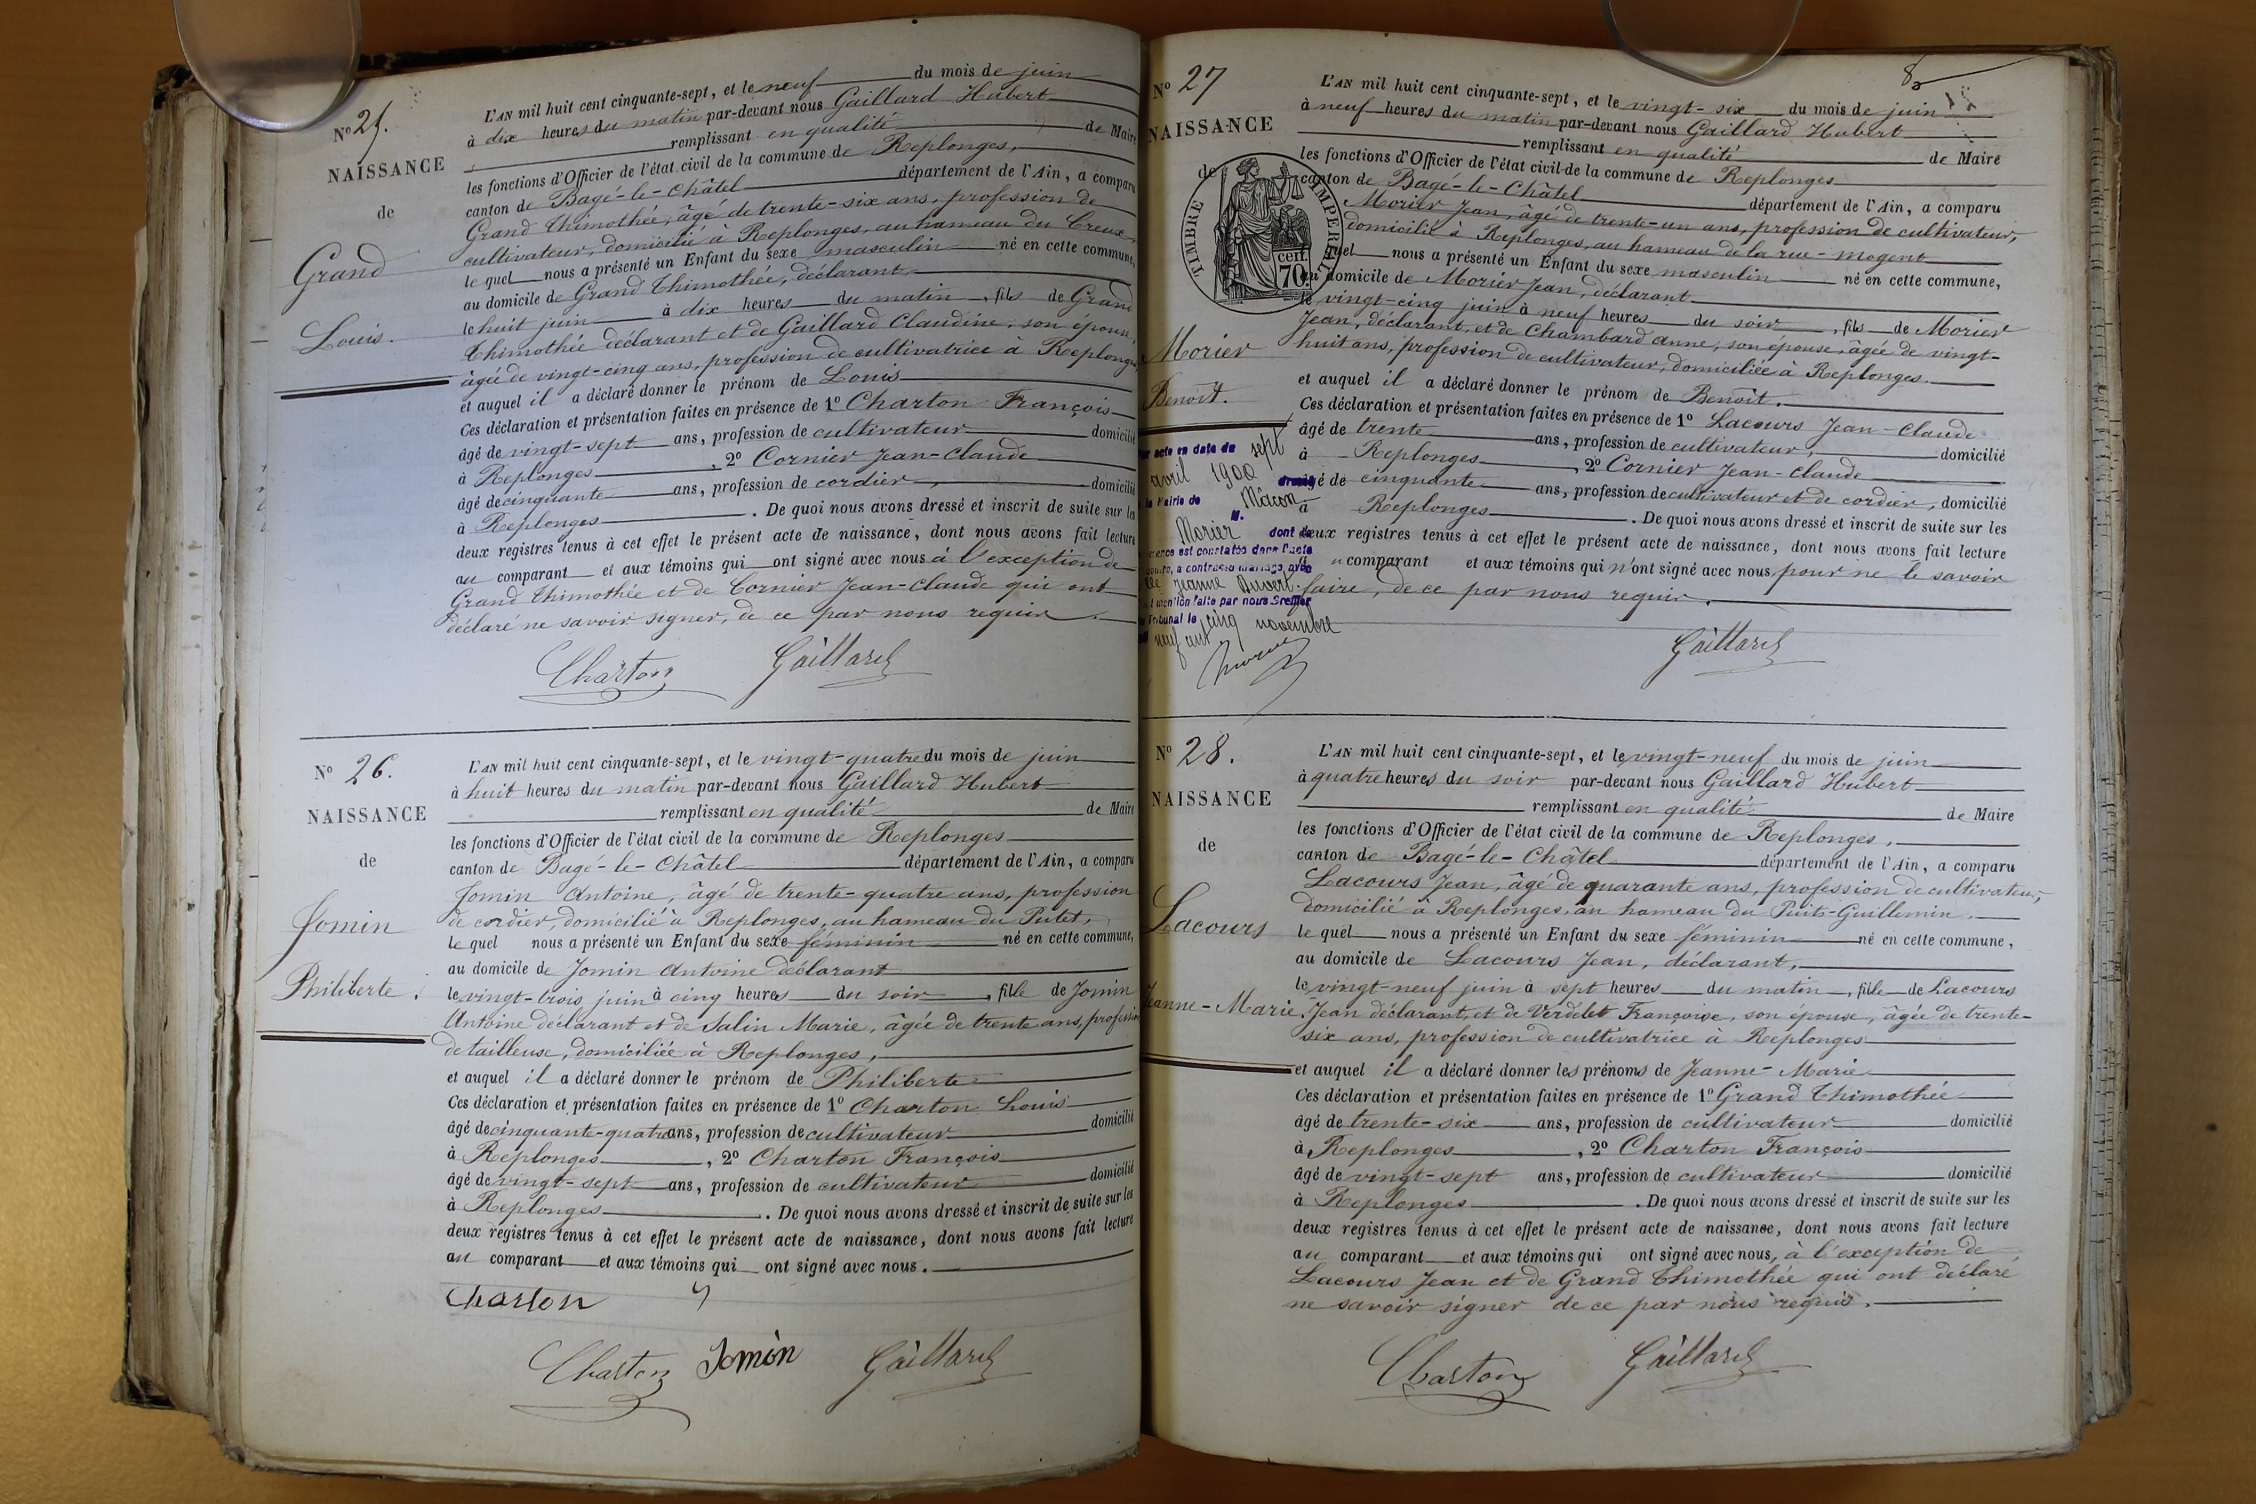 N° 25.
NAISSANCE
de
Grand
Louis.
L'AN mil huit cent cinquante-sept, et le neuf du mois de juin
à dix heures du matin par-devant nous Gaillard Hubert
remplissant en qualité de Maire
les fonctions d'Officier de l'état civil de la commune de Replonges,
canton de Bagé-le-Châtel département de l'Ain, a comparu
Grand Thimothée, âgé de trente-six ans, profession de
cultivateur, domicilié à Replonges, au hameau du Creux,
le quel nous a présenté un Enfant du sexe masculin né en cette commune,
au domicile de Grand Thimothée, déclarant
le huit juin à dix heures du matin, fils de Grand
Thimothée déclarant et de Gaillard Claudine, son épouse,
âgée de vingt-cinq ans, profession de cultivatrice à Replonges
et auquel il a déclaré donner le prénom de Louis
Ces déclaration et présentation faites en présence de 1° Charton François
âgé de vingt-sept ans, profession de cultivateur domicilié
à Replonges, 2° Cornier Jean-Claude
âgé de cinquante ans, profession de cordier, domicilié
à Replonges. De quoi nous avons dressé et inscrit de suite sur les
deux registres tenus à cet effet le présent acte de naissance, dont nous avons fait lecture
au comparant et aux témoins qui ont signé avec nous à l'exception de
Grand Thimothée et de Cornier Jean-Claude qui ont
déclaré ne savoir signer, de ce par nous requis.
Charton Gaillard
N° 26.
NAISSANCE
de
Jomin
Philiberte.
L'AN mil huit cent cinquante-sept, et le vingt-quatre du mois de juin
à huit heures du matin par-devant nous Gaillard Hubert
remplissant en qualité de Maire
les fonctions d'Officier de l'état civil de la commune de Replonges
canton de Bagé-le-Châtel département de l'Ain, a comparu
Jomin Antoine, âgé de trente-quatre ans, profession
de cordier, domicilié à Replonges, au hameau du Putet,
le quel nous a présenté un Enfant du sexe féminin né en cette commune,
au domicile de Jomin Antoine déclarant
le vingt-trois juin à cinq heures du soir, fille de Jomin
Antoine déclarant et de Salin Marie, âgée de trente ans, profession
de tailleuse, domiciliée à Replonges,
et auquel il a déclaré donner le prénom de Philiberte
Ces déclaration et présentation faites en présence de 1° Charton Louis
âgé de cinquante-quatre ans, profession de cultivateur domicilié
à Replonges, 2° Charton François
âgé de vingt-sept ans, profession de cultivateur domicilié
à Replonges. De quoi nous avons dressé et inscrit de suite sur les
deux registres tenus à cet effet le présent acte de naissance, dont nous avons fait lecture
au comparant et aux témoins qui ont signé avec nous.
Charton
Charton Jomin Gaillard
8
N° 27
NAISSANCE
de
TIMBRE IMPERIAL
cen.
70.
Morier
Benoît.
acte en date du sept
avril 1900 dressé
Mairie de Mâcon
M.
Morier dont
est constatée dans l'acte
a contracté mariage avec
Jeanne
mention faite par nous Greffier
Tribunal le cinq novembre
neuf cent
L'AN mil huit cent cinquante-sept, et le vingt-six du mois de juin
à neuf heures du matin par-devant nous Gaillard Hubert
remplissant en qualité de Maire
les fonctions d'Officier de l'état civil de la commune de Replonges
canton de Bagé-le-Châtel département de l'Ain, a comparu
Morier Jean, âgé de trente-un ans, profession de cultivateur,
domicilié à Replonges, au hameau de la rue-mogent
quel nous a présenté un Enfant du sexe masculin né en cette commune,
au domicile de Morier Jean, déclarant
le vingt-cinq juin à neuf heures du soir, fils de Morier
Jean, déclarant, et de Chambard anne, son épouse, âgée de vingt-
huit ans, profession de cultivateur, domiciliée à Replonges.
et auquel il a déclaré donner le prénom de Benoît.
Ces déclaration et présentation faites en présence de 1° Lacours Jean-Claude
âgé de trente ans, profession de cultivateur, domicilié
à Replonges, 2° Cornier Jean-Claude
âgé de cinquante ans, profession de cultivateur et de cordier, domicilié
à Replonges. De quoi nous avons dressé et inscrit de suite sur les
deux registres tenus à cet effet le présent acte de naissance, dont nous avons fait lecture
au comparant et aux témoins qui n'ont signé avec nous pour ne le savoir
faire, de ce par nous requis.
Gaillard
N° 28.
NAISSANCE
de
Lacours
Jeanne-Marie
L'AN mil huit cent cinquante-sept, et le vingt-neuf du mois de juin
à quatre heures du soir par-devant nous Gaillard Hubert
remplissant en qualité de Maire
les fonctions d'Officier de l'état civil de la commune de Replonges,
canton de Bagé-le-Châtel département de l'Ain, a comparu
Lacours Jean, âgé de quarante ans, profession de cultivateur,
domicilié à Replonges, au hameau du Puits-Guillemin.
le quel nous a présenté un Enfant du sexe féminin né en cette commune,
au domicile de Lacours Jean, déclarant,
le vingt-neuf juin à sept heures du matin, fille de Lacours
Jean déclarant, et de Verdelet Françoise, son épouse, âgée de trente-
six ans, profession de cultivatrice à Replonges
et auquel il a déclaré donner les prénoms de Jeanne-Marie
Ces déclaration et présentation faites en présence de 1° Grand Thimothée
âgé de trente-six ans, profession de cultivateur domicilié
à Replonges, 2° Charton François
âgé de vingt-sept ans, profession de cultivateur domicilié
à Replonges. De quoi nous avons dressé et inscrit de suite sur les
deux registres tenus à cet effet le présent acte de naissance, dont nous avons fait lecture
au comparant et aux témoins qui ont signé avec nous, à l'exception de
Lacours Jean et de Grand Thimothée qui ont déclaré
ne savoir signer de ce par nous requis.
Charton Gaillard